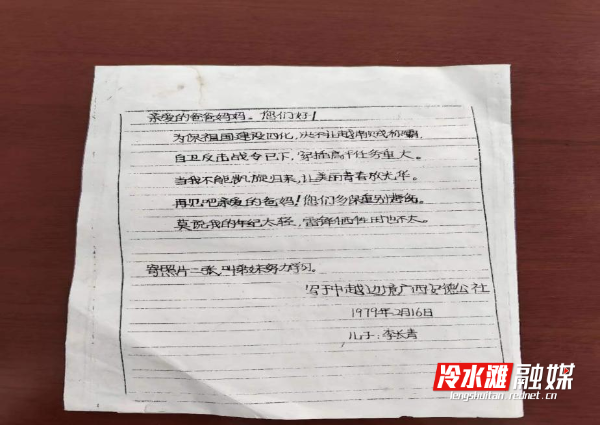 亲爱的爸爸妈妈。您们好！
为保祖国建设四化，决不让越南成称霸，
自卫反击战令已下，穿插高平任务重大。
当我不能凯旋归来，让美丽青春放光华。
再见吧亲爱的爸妈！您们多保重别
莫说我的年纪太轻，雷锋牺牲时也不大。
寄照片二张，叫弟妹努力学习。
写于中越边境广西安德公社
1979年2月16日
儿子：李长青
冷水滩融媒
lengshuitan.rednet.cn